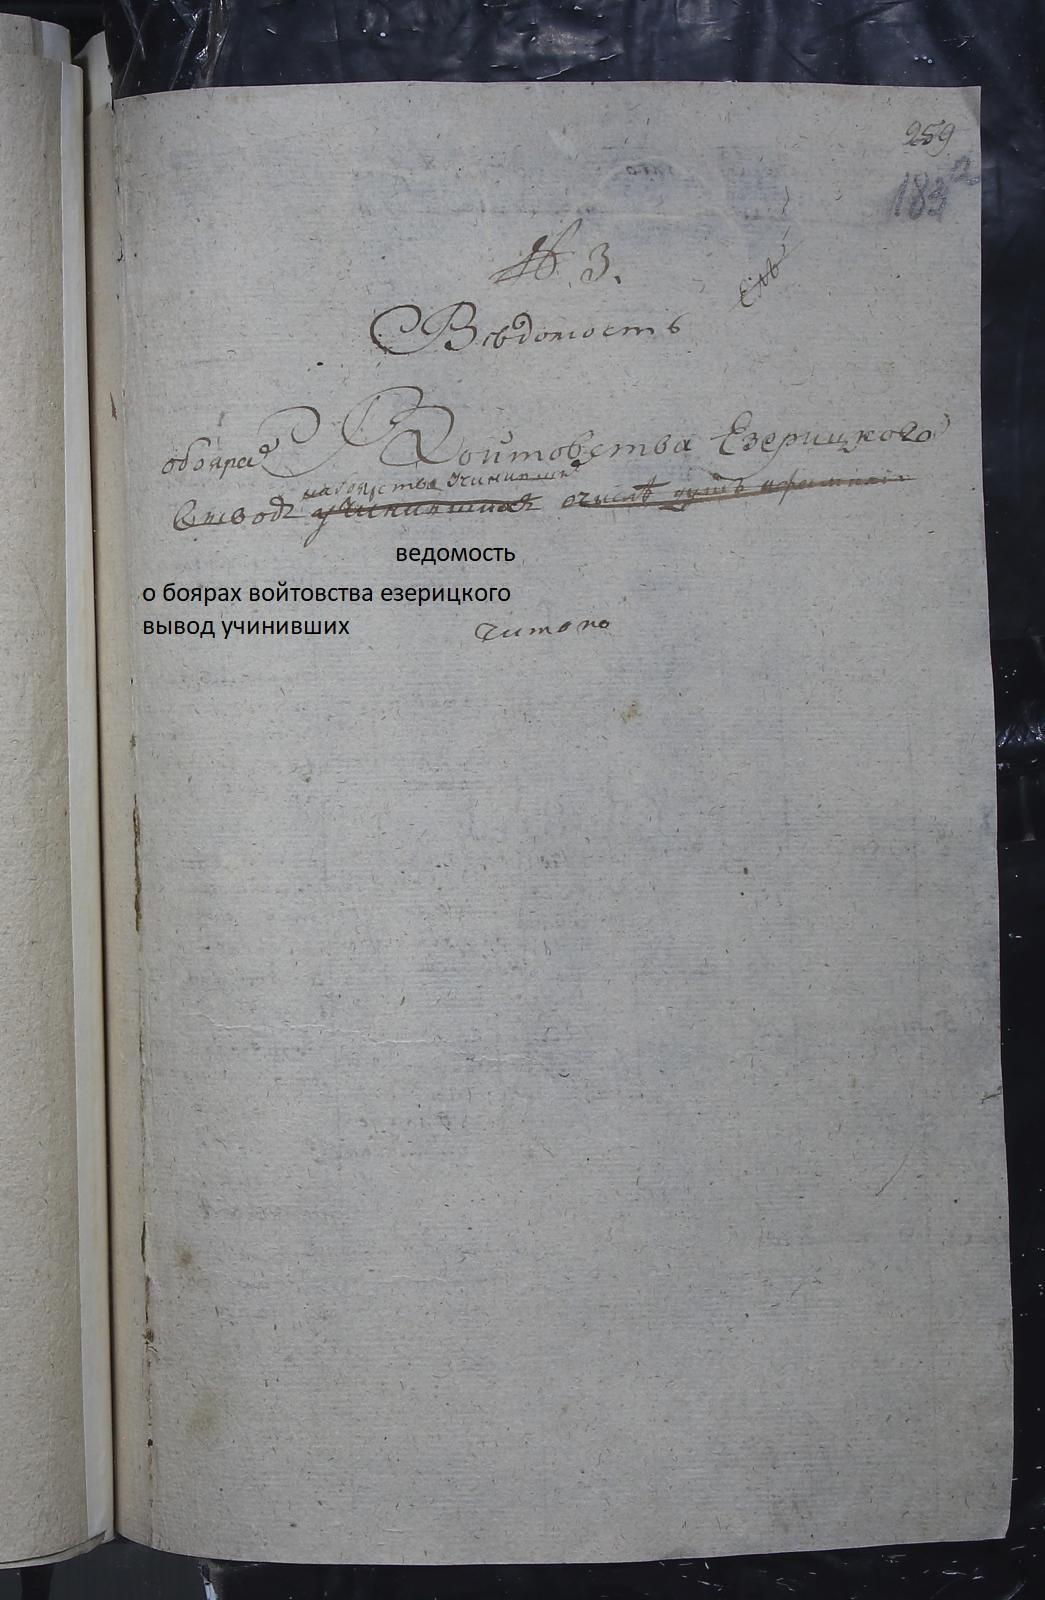 259
183
№ 3.
Вѣдомость
обоярах Войтовства Езерицкого
набоярство учинивших
вывод учинивших очислѣ душъ
ведомость
о боярах войтовства езерицкого
вывод учинивших
читано